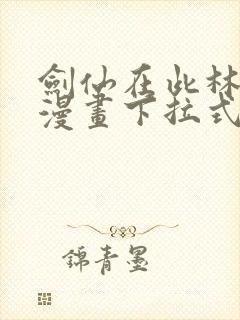 劍仙在此林
漫畫下拉式
錦青墨